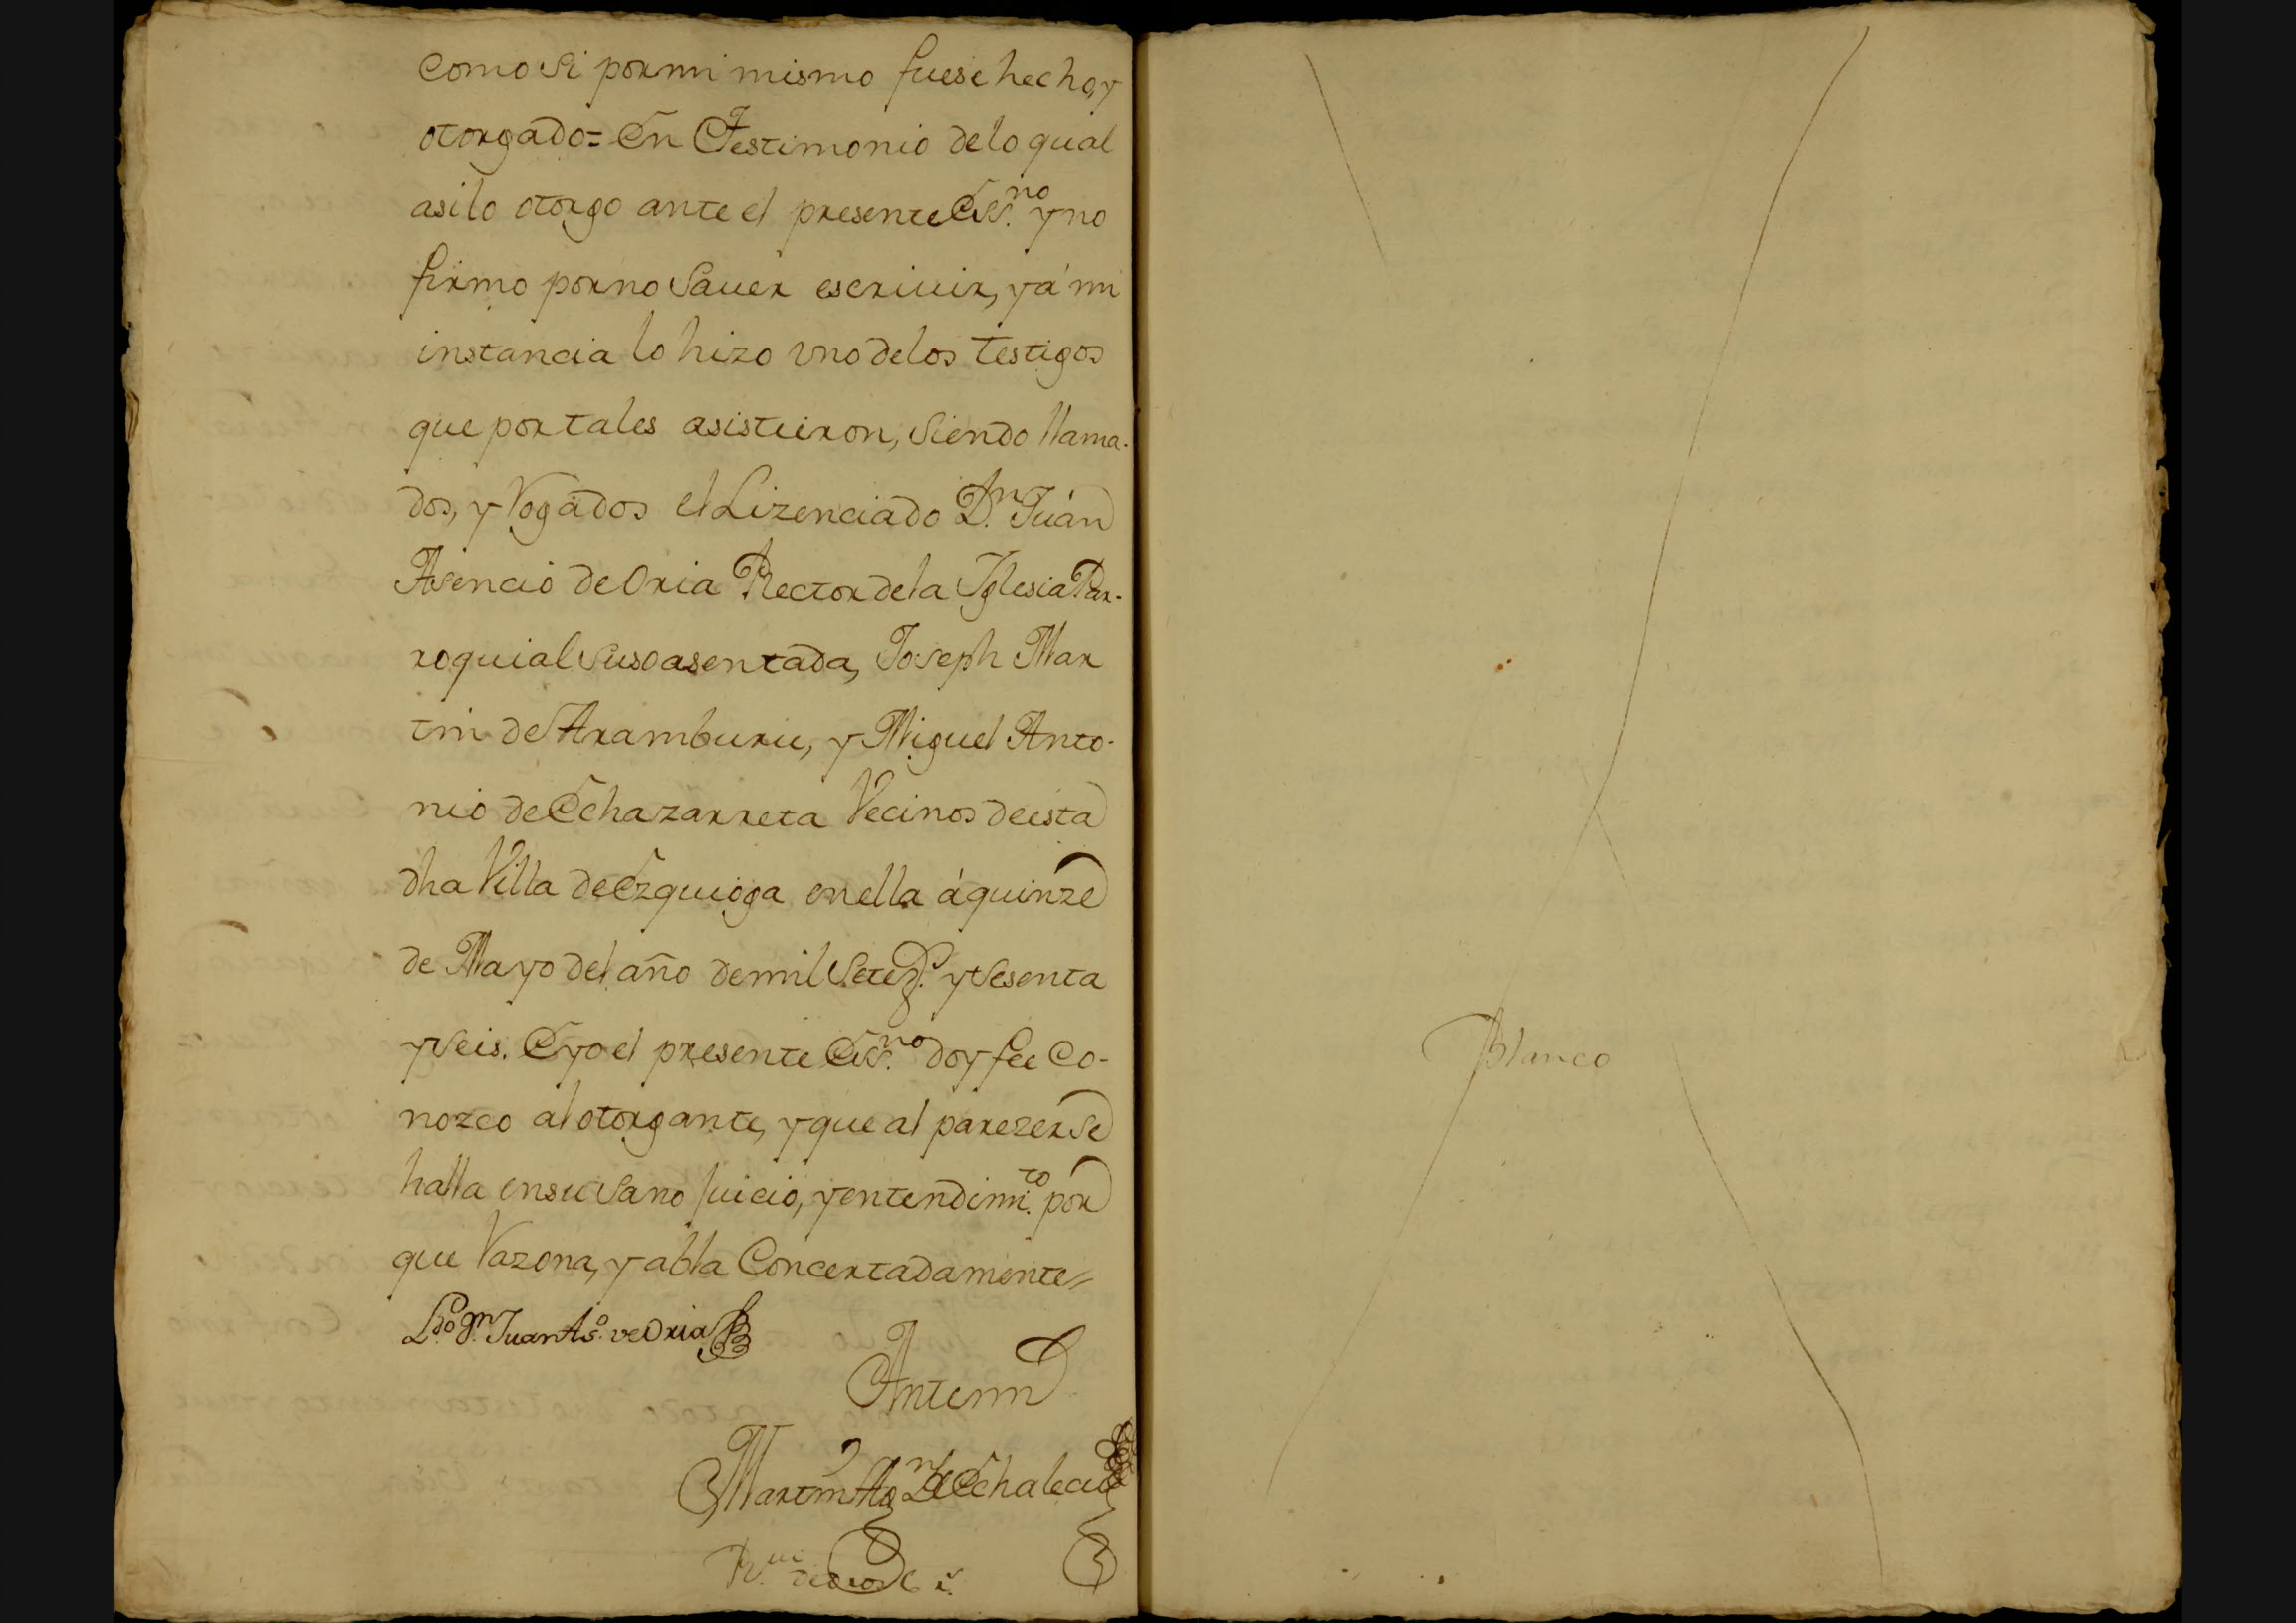 como si por mi mismo fuese hecho, y
otorgado = En Testimonio de lo qual
asi lo otorgo ante el presente Ess.no y no
firmo por no Sauer escriuir, y á mi
instancia lo hizo vno de los testigos
que por tales asistieron, siendo llama-
dos, y Rogados el Lizenciado D.n Juan
Asencio de Oria Rector de la Iglesia Par-
roquial suso asentada, Joseph Mar
tin de Aramburu, y Miguel Anto-
nio de Echazarreta Vecinos de esta
dha Villa de Ezquioga en ella á quinze
de Mayo del año de mil Setez.s y sesenta
y seis. E yo el presente Ess.no doy fee Co-
nozco al otorgante, y que al parezer se
halla en su sano Juicio, y entendim.to por
que Razona, y abla Concertadamente =
L.do D.n Juan As.o de Oria
Ante mi
Martin Ag.n de Echalecu
Blanco